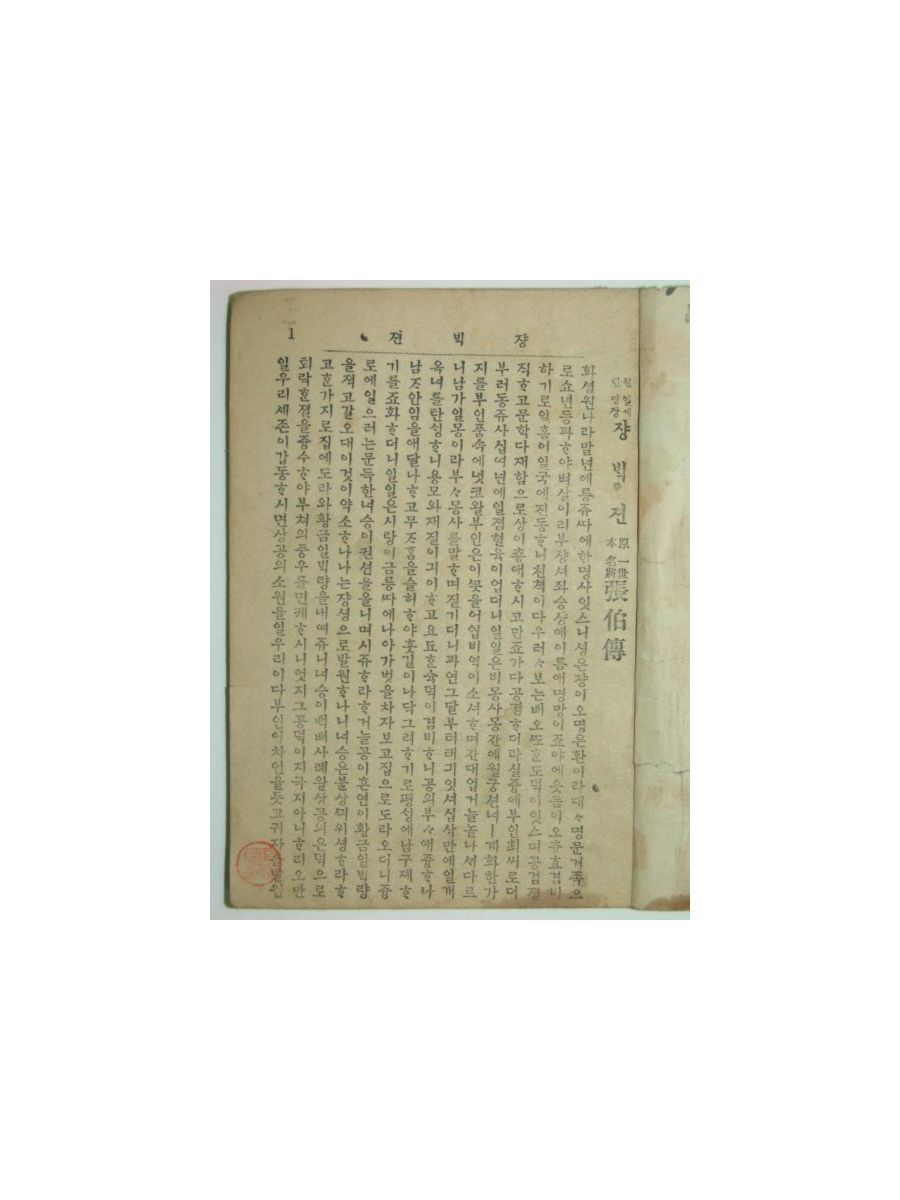 쟝ᄇᆡᆨ젼 1
원본 일셰명장 쟝ᄇᆡᆨ젼 原本 一世名將 張伯傳
화셜원나라말년에릉쥬ᄯᅡ에한명사잇스니셩은쟝이오명은환이라대々명문거족으
로쇼년등과ᄒᆞ야벼살이리부샹셔좌승샹에이름애명망이죠야에읏듬이오츙효겸비
하기로일흠이일국에진동ᄒᆞ니친쳑이다우러々보는배오ᄯᅩᄒᆞᆫ도덕이잇스며공검졍
직ᄒᆞ고문학다재합으로상이춍애ᄒᆞ시고만죠가다공경ᄒᆞ더라실즁에부인최씨로더
부러동쥬사십여년에일졈혈육이업더니일일은비몽사몽간에월궁션녀ㅣ계화한가
지를부인품속에넛코왈부인은이ᄭᅩᆺ을어엽비역이소셔ᄒᆞ며간대업거늘놀나ᄭᆡ다르
니남가일몽이라부々몽사를말ᄒᆞ며질기더니과연그달부터태긔잇셔십삭만에일개
옥녀를탄ᄉᆡᆼᄒᆞ니용모와재질이긔이ᄒᆞ고요됴ᄒᆞᆫ슉덕이겸비ᄒᆞ니공의부々애즁ᄒᆞ나
남ᄌᆞ안임을애달나ᄒᆞ고무ᄌᆞᄒᆞᆷ을슬허ᄒᆞ야훗길이나닥그려ᄒᆞ기로평ᄉᆡᆼ에남구졔ᄒᆞ
기를죠화ᄒᆞ더니일일은시랑이금릉ᄯᅡ에나아가벗을차자보고집으로도라오더니즁
로에일으러는문득한녀승이권션을올니며시쥬ᄒᆞ라ᄒᆞ거늘공이흔연이황금일ᄇᆡᆨ량
을젹고갈오대이것이약소ᄒᆞ나나는쟝셩으로발원ᄒᆞ나니녀승은불샹ᄭᅴ위셩ᄒᆞ라ᄒᆞ
고ᄒᆞᆫ가지로집에도라와황금일ᄇᆡᆨ량을내여쥬니녀승이ᄇᆡᆨ배사례왈샹공의은덕으로
퇴락ᄒᆞᆫ졀을즁수ᄒᆞ야부쳐의풍우를면케ᄒᆞ시니엇지그공덕이지극지아니ᄒᆞ리오만
일우리세존이감동ᄒᆞ시면샹공의소원을일우리이다부인이차언을듯고귀자